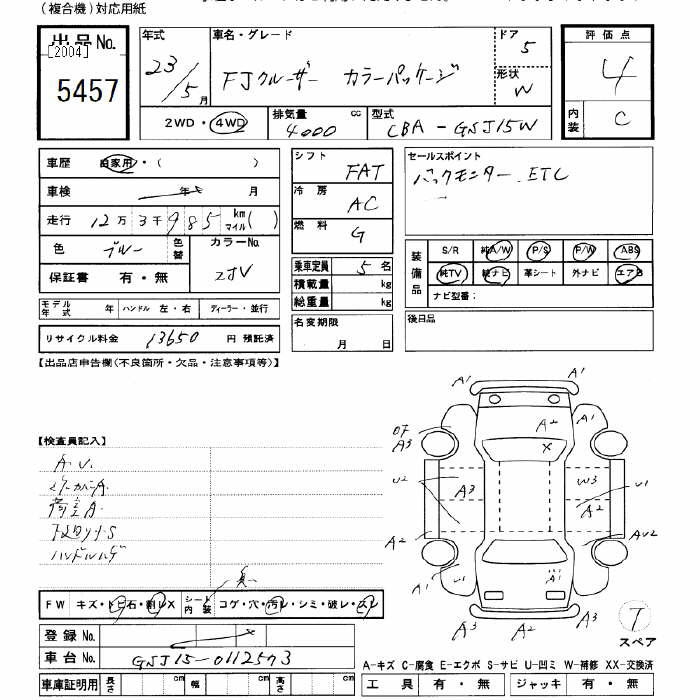 (複合機)対応用紙
出品No.
[2004]
5457
年式
23/5月
車名・グレード
FJクルーザー カラーパッケージ
ドア
5
形状
W
評価点
4
内装
C
2WD・4WD
排気量
4000 cc
型式
CBA-GSJ15W
車歴 自家用・( )
車検 年 月
走行 12万3千985 km マイル( )
色 ブルー 色替
カラーNo.
2JV
保証書 有・無
モデル年式 年 ハンドル 左・右 ディーラー・並行
リサイクル料金 13650 円 預託済
シフト FAT
冷房 AC
燃料 G
乗車定員 5 名
積載量 kg
総重量 kg
名変期限 月 日
セールスポイント
バックモニター ETC
装備品
S/R 純A/W P/S P/W ABS
純TV 純ナビ 革シート 外ナビ エアB
ナビ型番:
後日品
【出品店申告欄(不良箇所・欠品・注意事項等)】
【検査員記入】
A.U.
荷室A
下回りサS
ハンドルハゲ
FW キズ・トビ石・割レX シート内装 コゲ・穴・汚レ・シミ・破レ・スレ
登録No.
車台No. GSJ15-0112573
車庫証明用 長さ cm 幅 cm 高さ cm
A1 A1
A3 A2 A1
X
U2 A3 W3 U1
A2
A2 AU2
U1 A1 A1
A3 A2 A3
T
スペア
A-キズ C-腐食 E-エクボ S-サビ U-凹ミ W-補修 XX-交換済
工具 有・無 ジャッキ 有・無